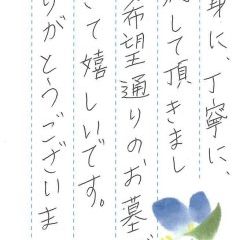 身に、丁寧に、
して頂きまし
希望通りのお墓が
て嬉しいです。
りがとうございま